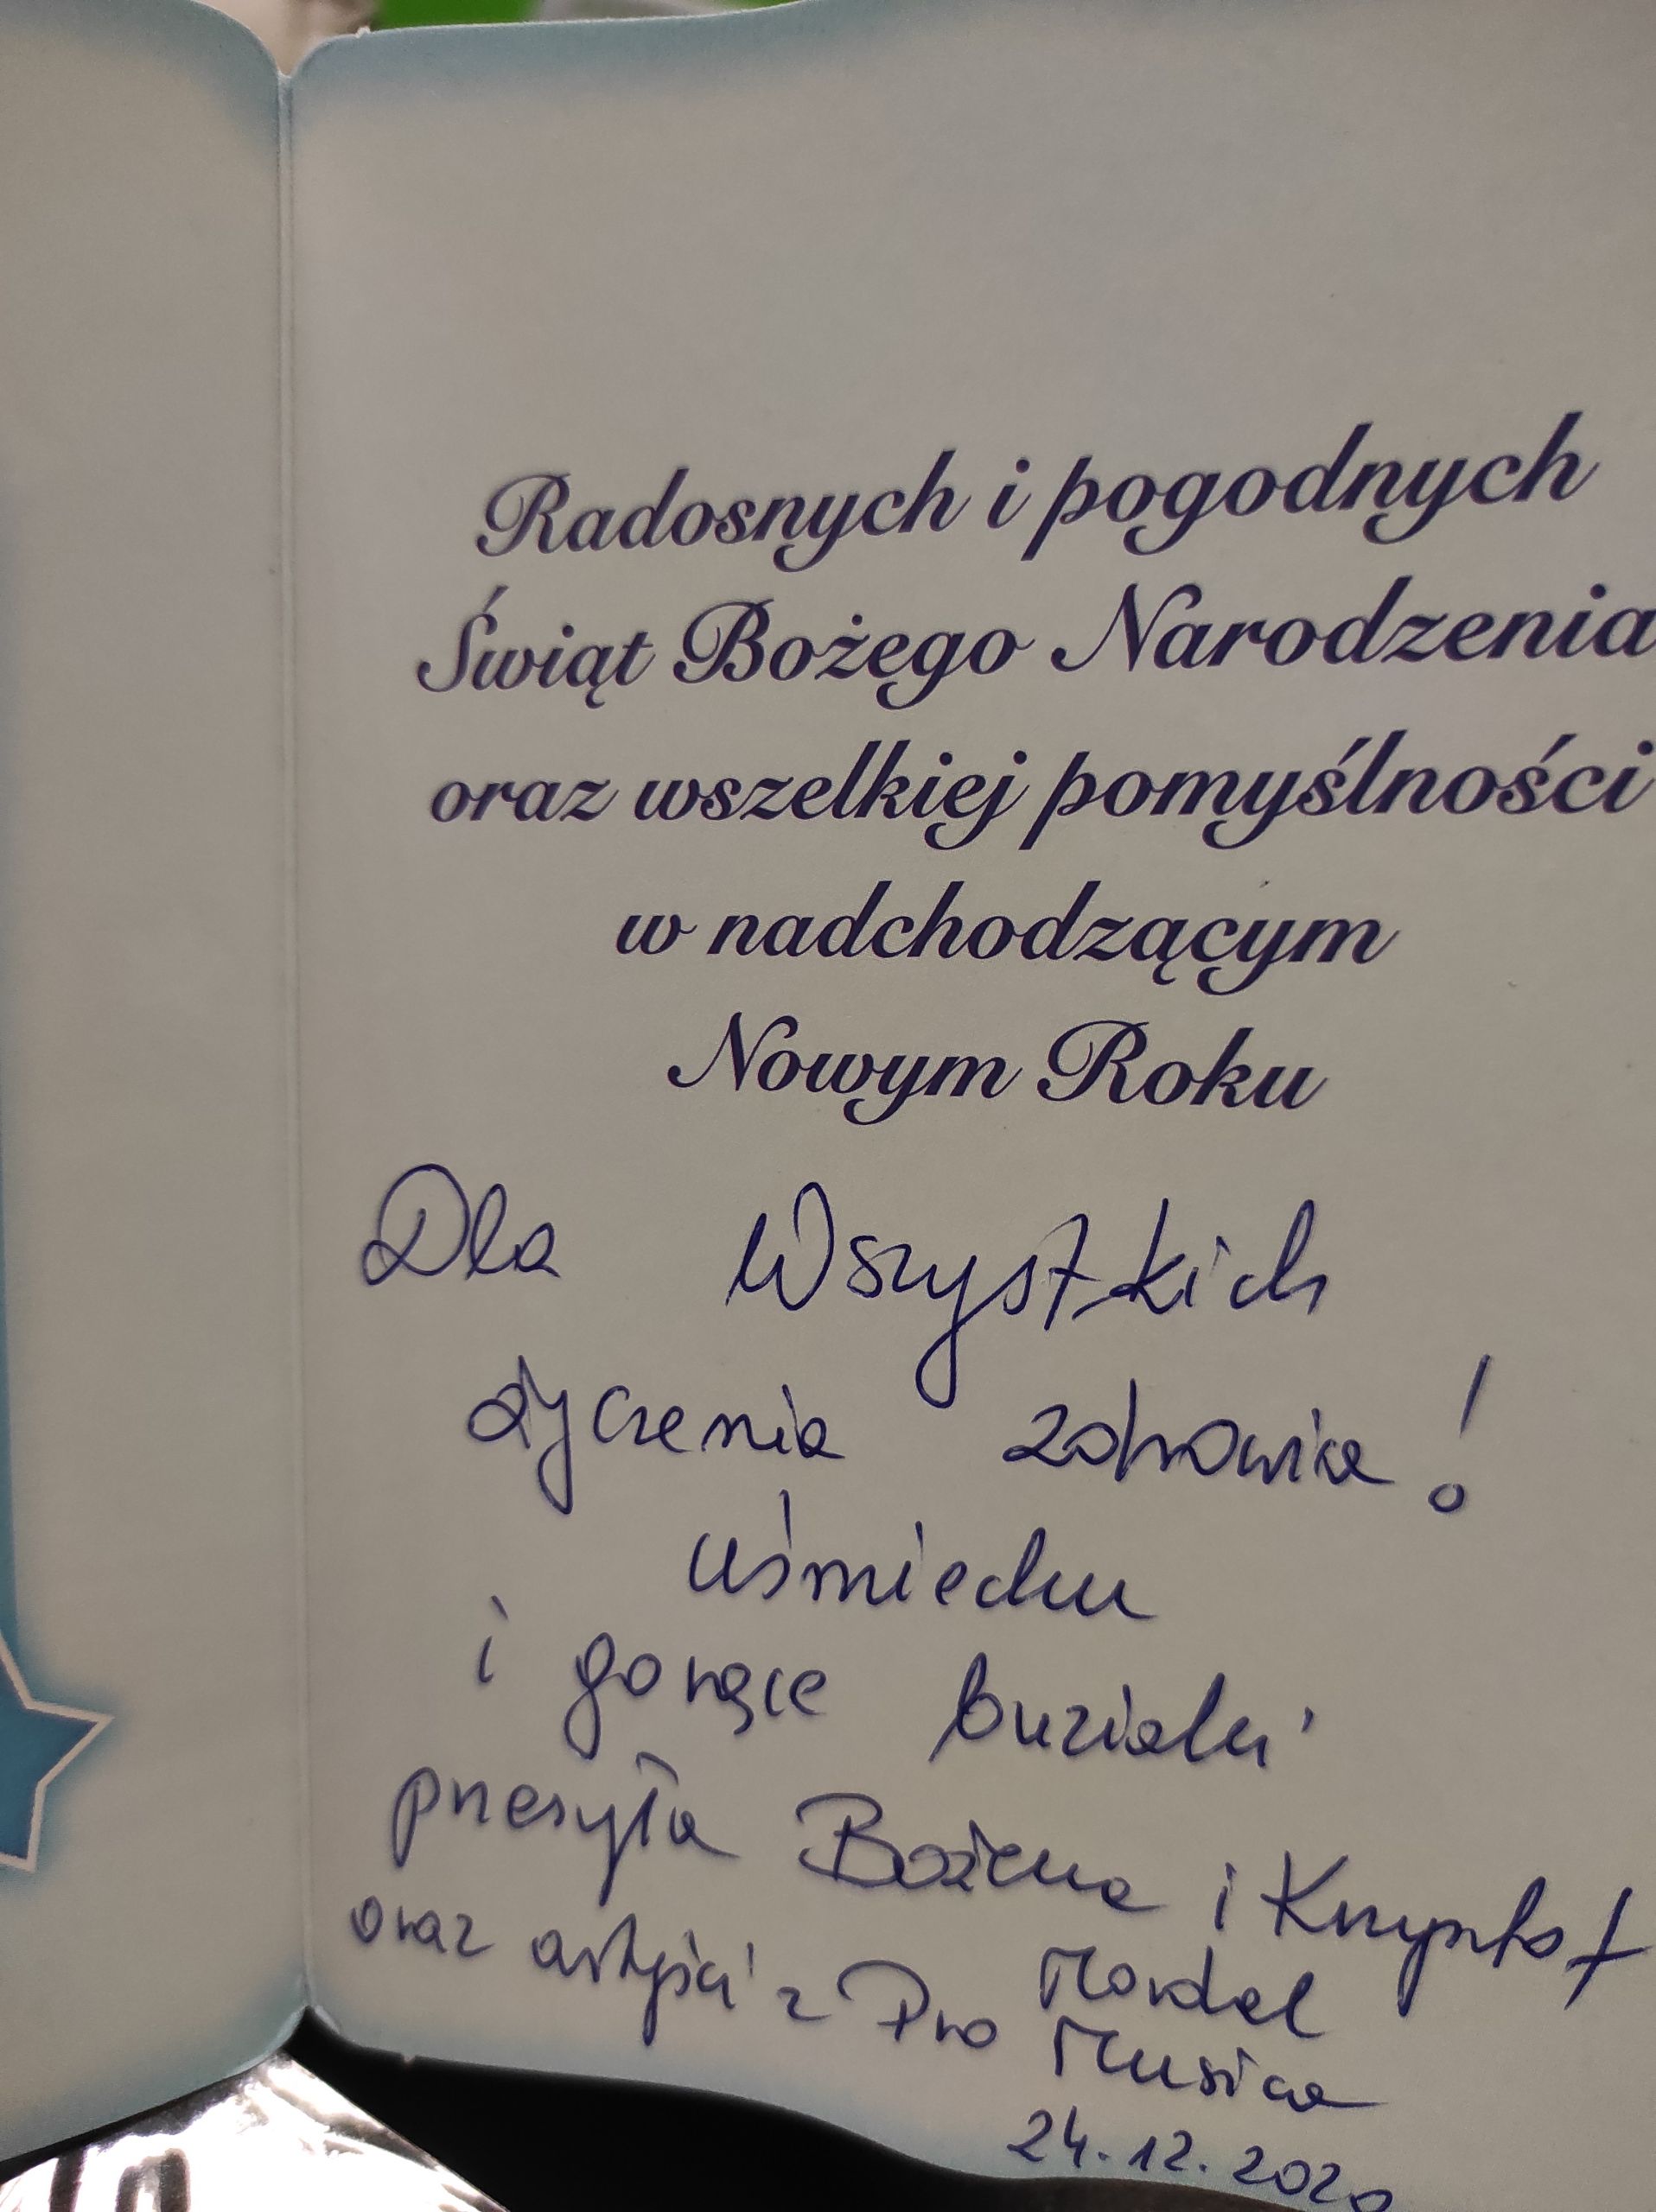 Radosnych i pogodnych
Świąt Bożego Narodzenia
oraz wszelkiej pomyślności
w nadchodzącym
Nowym Roku
Dla Wszystkich
życzenia zdrowia!
uśmiechu
i gorące buziaki
przesyła Bożena i Krzysztof
Mordel
oraz artyści z Pro Musica
24.12.2020